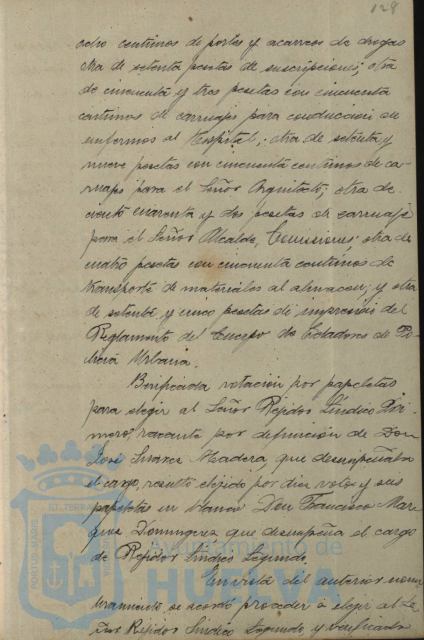 128
ocho centimos de portes y acarreos de drogas
otra de setenta pesetas de suscripciones; otra
de cincuenta y tres pesetas con cincuenta
centimos de carruajes para conduccion de
enfermos al Hospital; otra de setenta y
nueve pesetas con cincuenta centimos de ca-
rruajes para el Señor Arquitecto; otra de
ciento cuarenta y dos pesetas de carruaje
para el Señor Alcalde, Comisiones; otra de
cuatro pesetas con cincuenta centimos de
transporte de materiales al almacen; y otra
de setenta y cinco pesetas de impresion del
Reglamento del Cuerpo de Celadores de Po-
licia Urbana.
Verificada votacion por papeletas
para elegir al Señor Rejidor Sindico Pri-
mero, vacante por defuncion de Don
José Suarez Madera, que desempeñaba
el cargo, resultó elejido por diez votos y seis
papeletas en blanco Don Francisco Mar-
quez Dominguez que desempeña el cargo
de Rejidor Sindico Segundo.
En vista del anterior nom-
bramiento, se acordó proceder a elejir al Se-
ñor Rejidor Sindico Segundo, y verificada
Ayuntamiento de
HUELVA
PORTUS MARIS
ET TERRAE